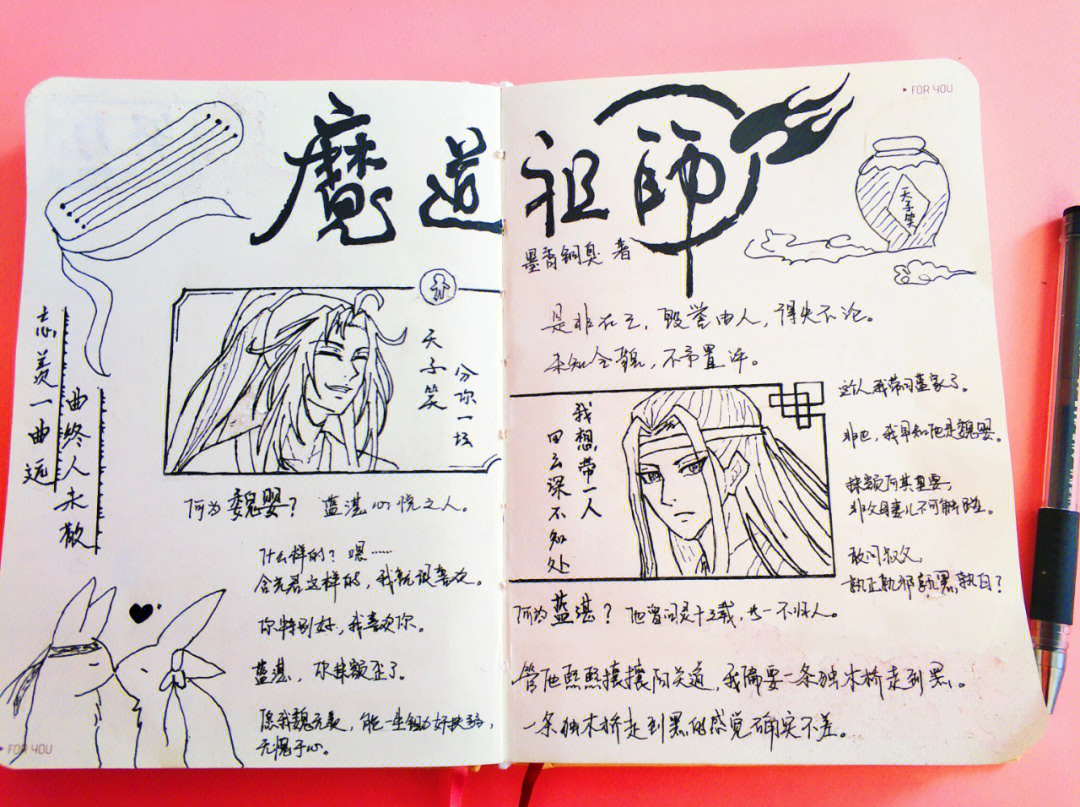 魔道祖師
FOR YOU
墨香铜臭 著
天子笑
忘羡一曲远
曲终人未散
天子笑
分你一坛
何为魏婴? 蓝湛心悦之人。
什么样的?嗯……
含光君这样的,我就很喜欢。
你特别好,我喜欢你。
蓝湛,你抹额歪了。
愿我魏无羡,能一生锄奸扶弱,
无愧于心。
FOR YOU
是非在己,毁誉由人,得失不论。
未知全貌,不予置评。
我想带一人
回云深不知处
这人我带回蓝家了。
非也,我早知他是魏婴。
抹额何其重要,
非父母妻儿不可触碰。
敢问叔父,
孰正孰邪孰黑孰白?
何为蓝湛?他曾问灵十三载,为一不归人。
管他熙熙攘攘阳关道,我偏要一条独木桥走到黑。
一条独木桥走到黑的感觉确实不差。